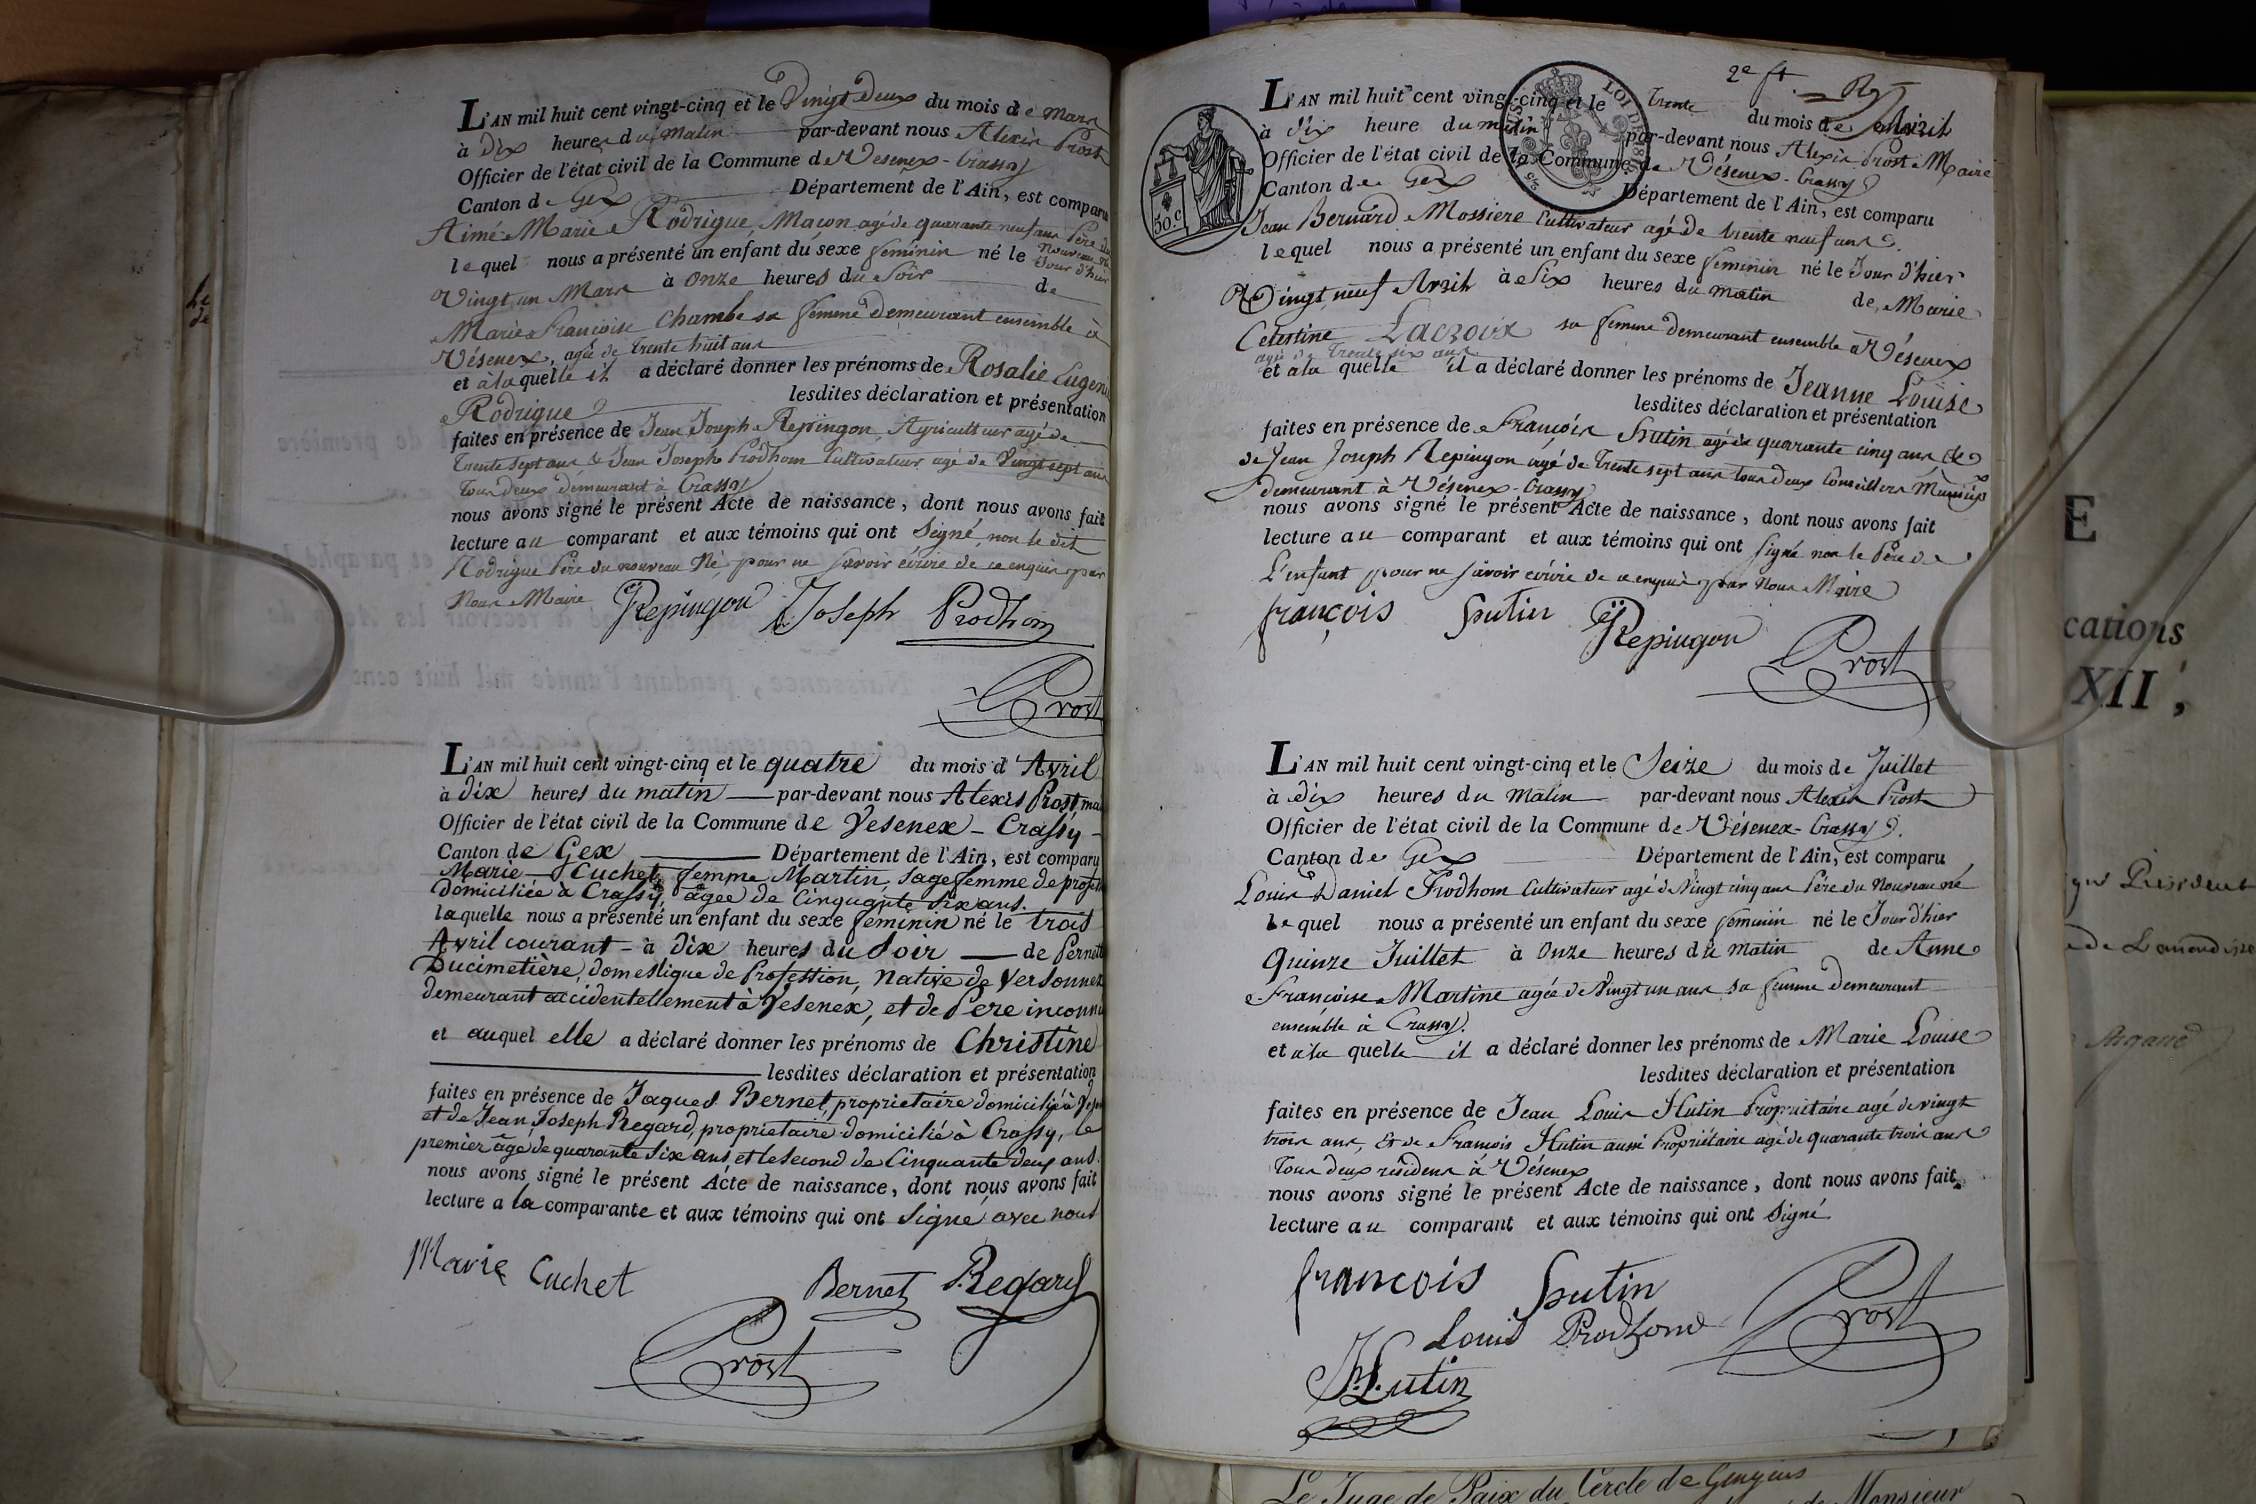 L'AN mil huit cent vingt-cinq et le Vingt Deux du mois de Mars
à Dix heures du matin par-devant nous Alexis Prost
Officier de l'état civil de la Commune de Vesenex-Crassy
Canton de Gex Département de l'Ain, est comparu
Aimé Marie Rodrigue, Maçon agé de quarante neuf ans Père du
nouveau né
lequel nous a présenté un enfant du sexe féminin né le Jour d'hier
Vingt un Mars à Onze heures du Soir de
Marie Françoise Chambe sa femme demeurant ensemble à
Vésenex, agée de Trente huit ans
et à la quelle il a déclaré donner les prénoms de Rosalie Eugenie
Rodrigue lesdites déclaration et présentation
faites en présence de Jean Joseph Repingon, Agriculteur agé de
Trente sept ans & Jean Joseph Prodhom Cultivateur agé de Vingt sept ans
Tous deux demeurant à Crassy
nous avons signé le présent Acte de naissance, dont nous avons fait
lecture au comparant et aux témoins qui ont Signé, non le dit
Rodrigue Père du nouveau Né, pour ne savoir écrire de ce enquis par
Nous Maire
Repingon Joseph Prodhom
Prost
L'AN mil huit cent vingt-cinq et le quatre du mois d'Avril
à Dix heures du matin par-devant nous Alexis Prost mai
Officier de l'état civil de la Commune de Vesenex-Crassy
Canton de Gex Département de l'Ain, est comparu
Marie Cuchet, femme Martin, Sage femme de profes
domiciliée à Crassy, âgée de Cinquante Six ans.
laquelle nous a présenté un enfant du sexe féminin né le trois
Avril courant - à Dix heures du Soir de Pernette
Ducimetière, domestique de Profession, Native de Versonnex
demeurant accidentellement à Vesenex, et de Père inconnu
et auquel elle a déclaré donner les prénoms de Christine
lesdites déclaration et présentation
faites en présence de Jaques Bernet, proprietaire domicilié à Vesen
et de Jean Joseph Regard, proprietaire domicilié à Crassy, le
premier âgé de quarante Six ans et le second de Cinquante deux ans.
nous avons signé le présent Acte de naissance, dont nous avons fait
lecture a la comparante et aux témoins qui ont Signé avec nous
Marie Cuchet Bernet Regard
Prost
2e ft.
LOI DE 1816
50.c
L'AN mil huit cent vingt-cinq et le Trente du mois de Avril
à Dix heure du matin par-devant nous Alexis Prost Maire
Officier de l'état civil de la Commune de Vésenex-Crassy
Canton de Gex Département de l'Ain, est comparu
Jean Bernard Mossiere Cultivateur agé de trente neuf ans
lequel nous a présenté un enfant du sexe feminin né le Jour d'hier
Vingt neuf Avril à Six heures du matin de Marie
Celestine Lacroix sa femme demeurant ensemble à Vésenex
agée de Trente six ans
et à la quelle il a déclaré donner les prénoms de Jeanne Louise
lesdites déclaration et présentation
faites en présence de François Hutin agé de quarante cinq ans &
de Jean Joseph Repingon agé de Trente sept ans tous deux Conseillers Municip
demeurant à Vésenex-Crassy
nous avons signé le présent Acte de naissance, dont nous avons fait
lecture au comparant et aux témoins qui ont signé non le Père de
L'enfant pour ne savoir écrire de ce enquis par Nous Maire
françois Hutin Repingon
Prost
L'AN mil huit cent vingt-cinq et le Seize du mois de Juillet
à Dix heures du Matin par-devant nous Alexis Prost
Officier de l'état civil de la Commune de Vésenex-Crassy
Canton de Gex Département de l'Ain, est comparu
Louis Daniel Prodhom Cultivateur agé de Vingt cinq ans Père du Nouveau né
lequel nous a présenté un enfant du sexe feminin né le Jour d'hier
Quinze Juillet à Onze heures du Matin de Anne
Françoise Martine agée de Vingt un ans sa femme demeurant
ensemble à Crassy.
et à la quelle il a déclaré donner les prénoms de Marie Louise
lesdites déclaration et présentation
faites en présence de Jean Louis Hutin Propriétaire agé de vingt
trois ans, Et de François Hutin aussi Propriétaire agé de quarante trois ans
Tous deux résidens à Vésenex
nous avons signé le présent Acte de naissance, dont nous avons fait
lecture au comparant et aux témoins qui ont Signé
francois Hutin
Louis Prodhom Prost
Hutin
E
cations
XII,
Le Juge de Paix du Cercle de Gengins
de Monsieur